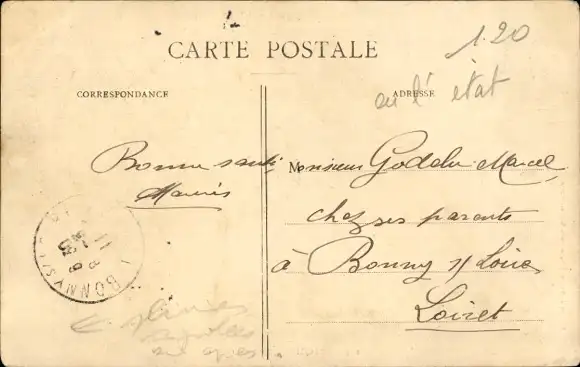 CARTE POSTALE
1.20
CORRESPONDANCE
ADRESSE
en l'état
Bonne santé
Mauris
Monsieur Godelu Marcel
chez ses parents
à Bonny s/ Loire
Loiret
BONNY S/